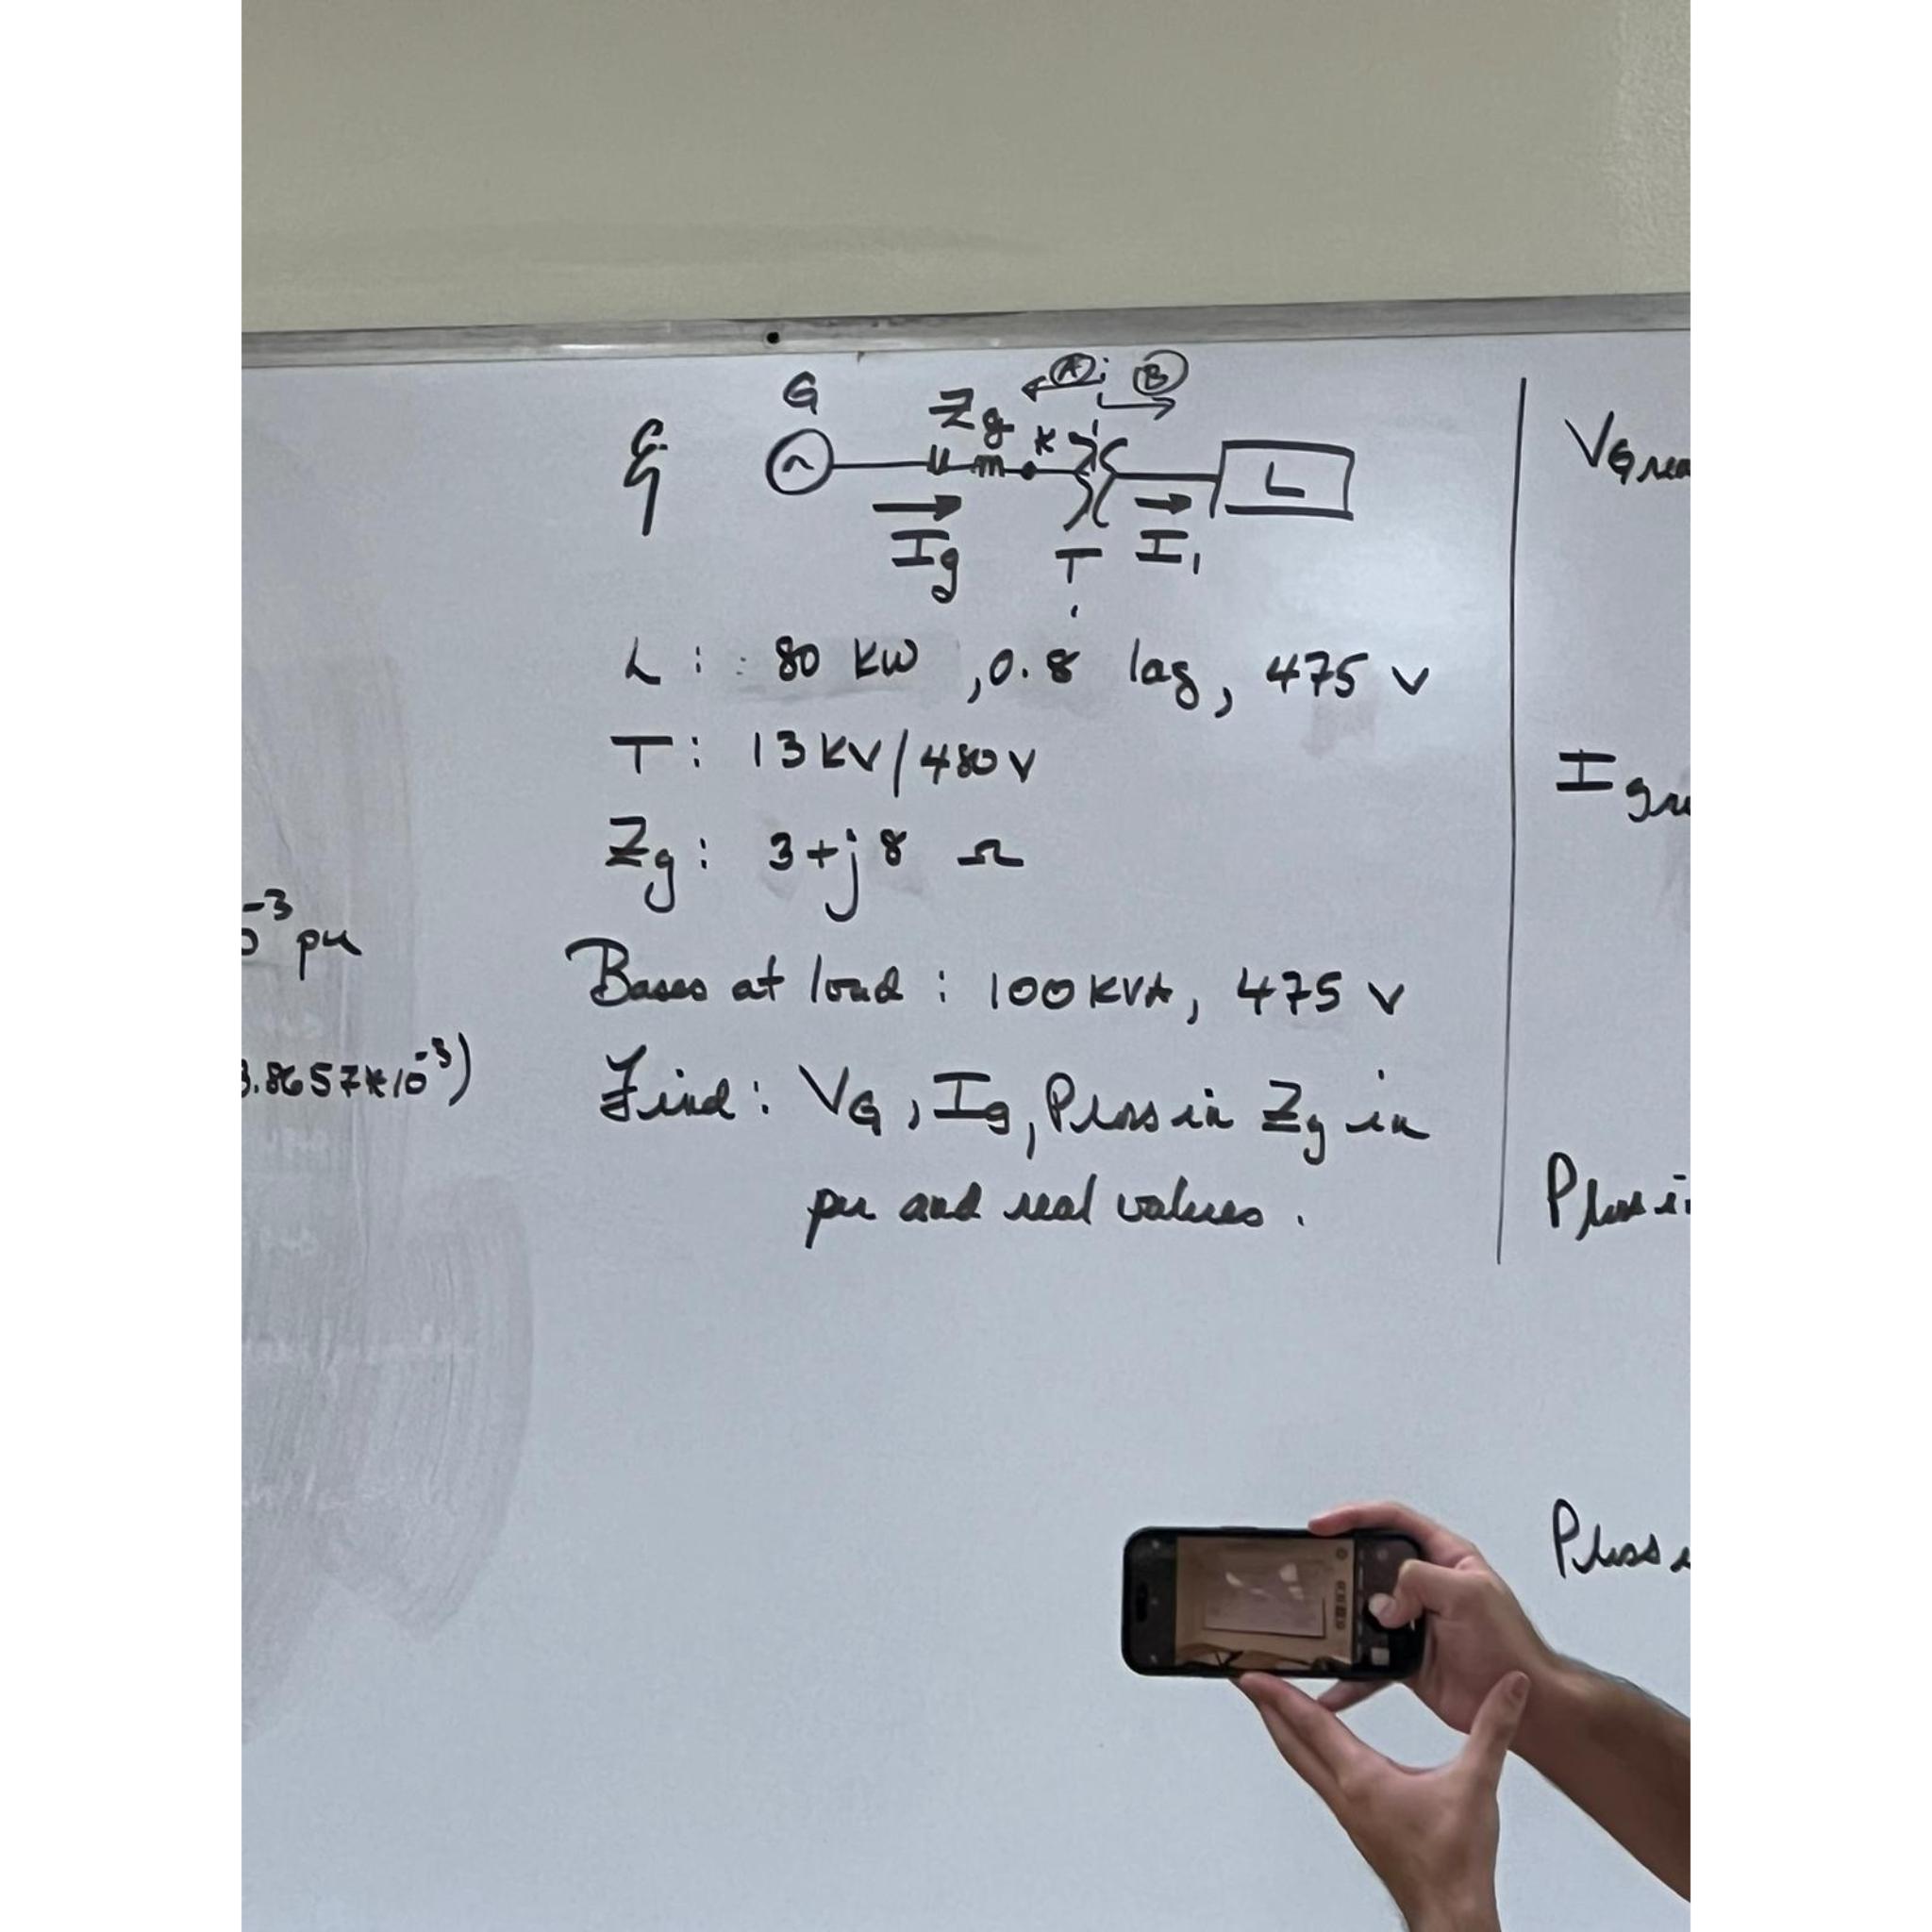 G
Zg
K
A
B
Eg
L
Ig
T
I₁
L : 80 KW , 0.8 lag, 475 V
T : 13 KV / 480 V
Zg : 3 + j 8 Ω
Bases at load : 100 KVA, 475 V
Find : VG , Ig, Ploss in Zg in
pu and real values .
-3
pu
3.8657*10⁻³)
VG rea
I g re
Ploss i
Ploss